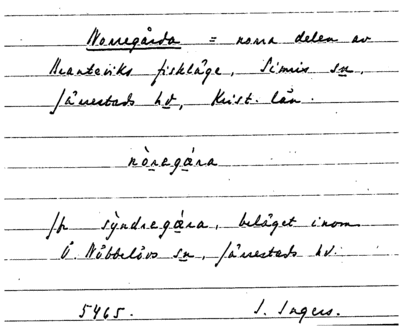 Norregårda = norra delen av
Branteviks fiskläge, Simris sn,
Järrestads hd, Krist. län.
nòregára
Jfr sỳndregára, beläget inom
Ö. Nöbbelövs sn, Järrestads hd.
5465. I. Ingers.